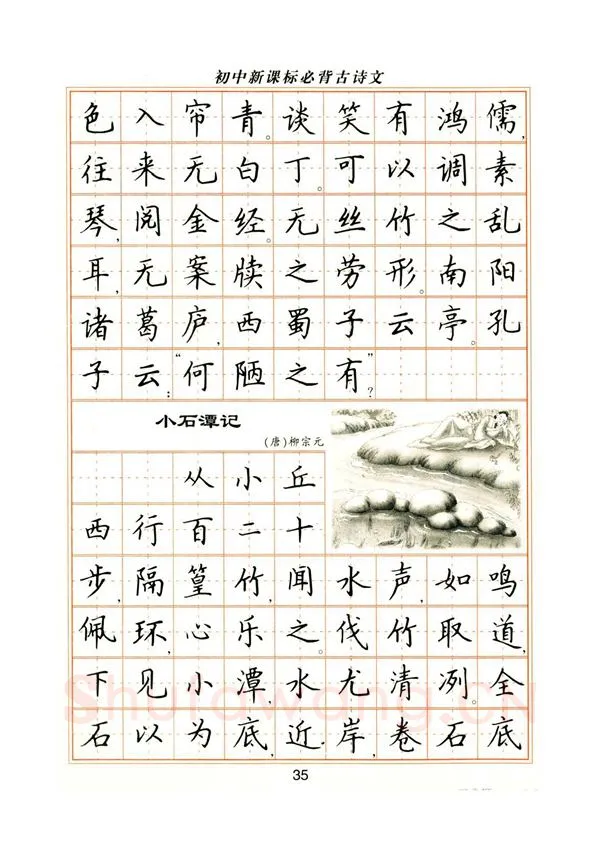 初中新课标必背古诗文
色入帘青。谈笑有鸿儒,
往来无白丁。可以调素
琴,阅金经。无丝竹之乱
耳,无案牍之劳形。南阳
诸葛庐,西蜀子云亭。孔
子云:“何陋之有”?
小石潭记
(唐)柳宗元
从小丘
西行百二十
步,隔篁竹,闻水声,如鸣
佩环,心乐之。伐竹取道,
下见小潭,水尤清冽。全
石以为底,近岸,卷石底
Shufawang.CN
35